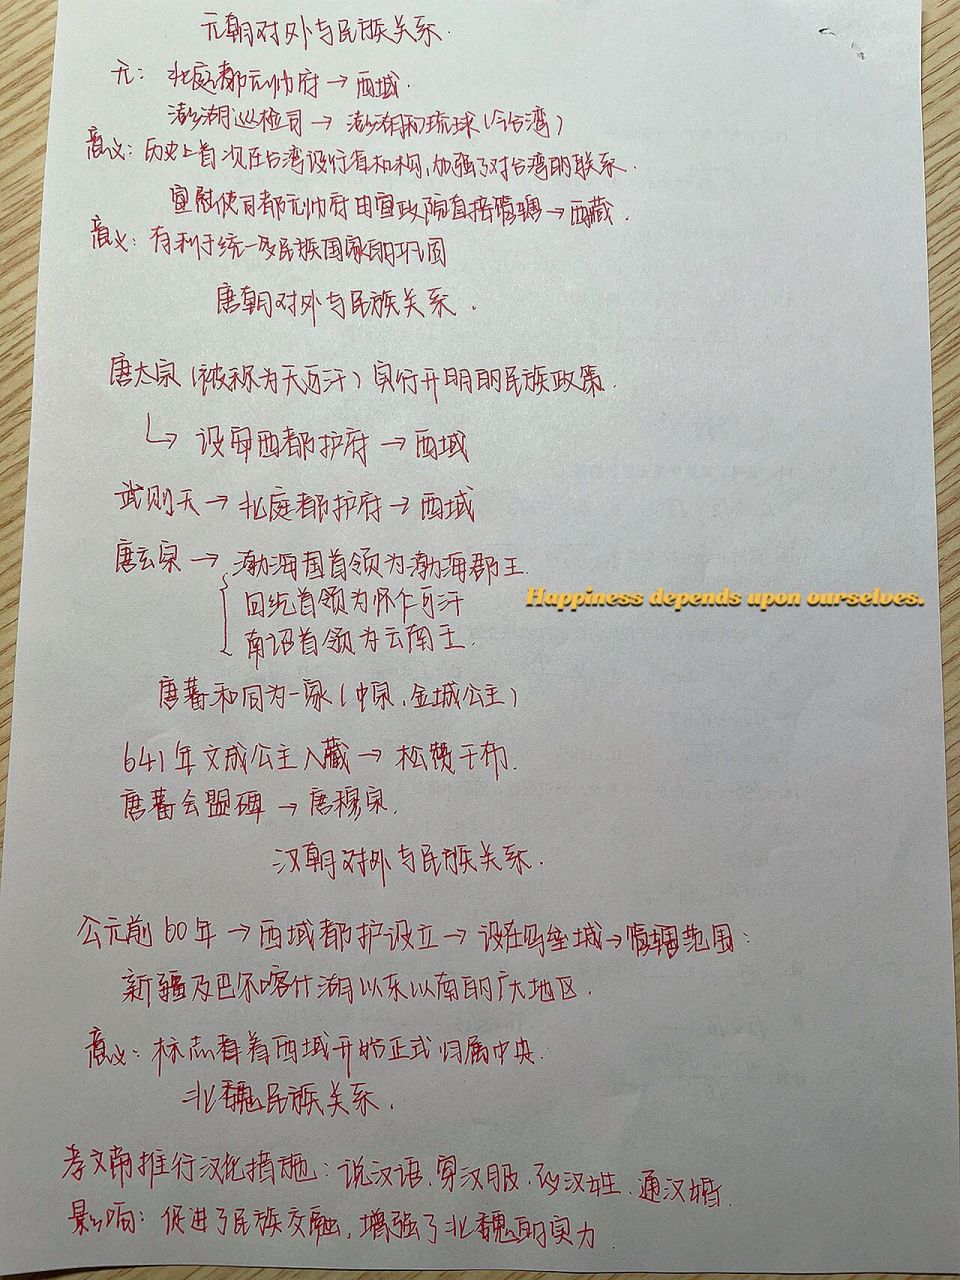 元朝对外与民族关系.
元: 北庭都元帅府→西域.
澎湖巡检司→澎湖和琉球(今台湾)
意义: 历史上首次在台湾设行省机构, 加强了对台湾的联系.
宣慰使司都元帅府由宣政院直接管辖→西藏.
意义: 有利于统一多民族国家的巩固
唐朝对外与民族关系.
唐太宗(被称为天可汗)实行开明的民族政策.
↳设安西都护府→西域
武则天→北庭都护府→西域
唐玄宗→渤海国首领为渤海郡王.
回纥首领为怀仁可汗
南诏首领为云南王.
Happiness depends upon ourselves.
唐蕃和同为一家(中宗, 金城公主)
641年文成公主入藏→松赞干布.
唐蕃会盟碑→唐穆宗.
汉朝对外与民族关系.
公元前60年→西域都护设立→设在乌垒城→管辖范围:
新疆及巴尔喀什湖以东以南的广大地区.
意义: 标志着西域开始正式归属中央.
北魏民族关系.
孝文帝推行汉化措施: 说汉语, 穿汉服, 改汉姓, 通汉婚.
影响: 促进了民族交融, 增强了北魏的实力